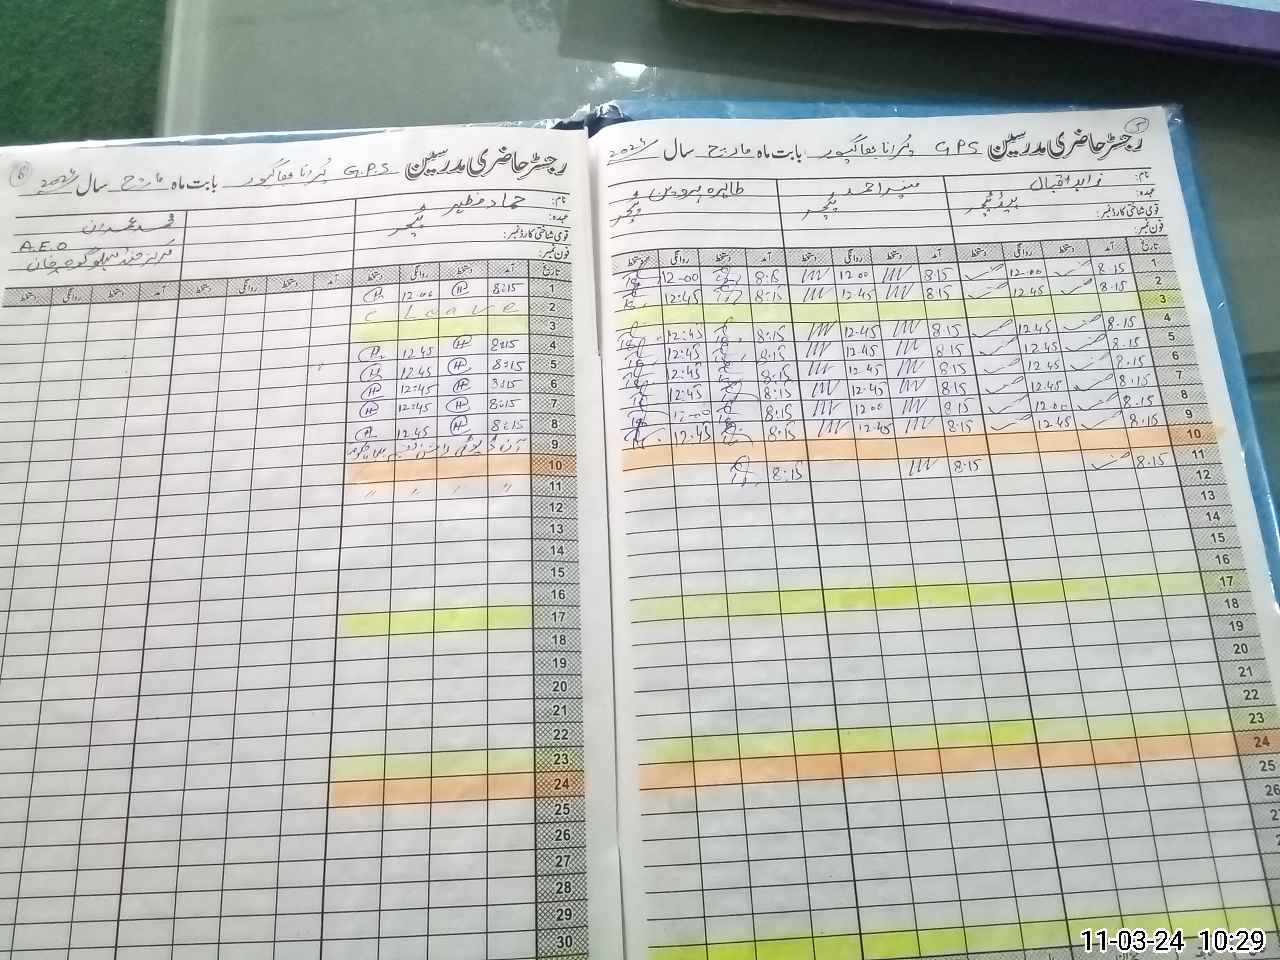 رجسٹر حاضری مدرسین G.P.S پرانا بھاگپور بابت ماہ مارچ سال 2024
6
نام: حماد مظہر
عہدہ: ٹیچر
قومی شناختی کارڈ نمبر:
فون نمبر:
محمد
A.E.O
تاریخ آمد دستخط روانگی دستخط آمد دستخط روانگی دستخط آمد دستخط روانگی دستخط
1 8:15 H 12-00 H
2 Leave
3
4 8:15 H 12.45 H
5 8:15 H 12.45 H
6 8:15 H 12:45 H
7 8:15 H 12:45 H
8 8:15 H 12.45 H
9
10
11 " " " "
12
13
14
15
16
17
18
19
20
21
22
23
24
25
26
27
28
29
30
رجسٹر حاضری مدرسین GPS پرانا بھاگپور بابت ماہ مارچ سال 2024
5
نام: زاہد اقبال منیر احمد طاہرہ پروین
عہدہ: ہیڈ ٹیچر ٹیچر ٹیچر
قومی شناختی کارڈ نمبر:
فون نمبر:
تاریخ آمد دستخط روانگی دستخط آمد دستخط روانگی دستخط آمد دستخط روانگی دستخط
1 8.15 12.00 8.15 12.00 8:15 12-00
2 8.15 12.45 8.15 12.45 8:15 12:45
3
4 8.15 12.45 8.15 12.45 8:15 12:45
5 8.15 12.45 8.15 12.45 8:15 12:45
6 8.15 12.45 8.15 12.45 8:15 12:45
7 8.15 12.45 8.15 12.45 8:15 12:45
8 8.15 12.00 8.15 12.00 8:15 12-00
9 8.15 12.45 8.15 12.45 8:15 12:45
10
11 8.15 8.15 8:15
12
13
14
15
16
17
18
19
20
21
22
23
24
25
26
11-03-24 10:29